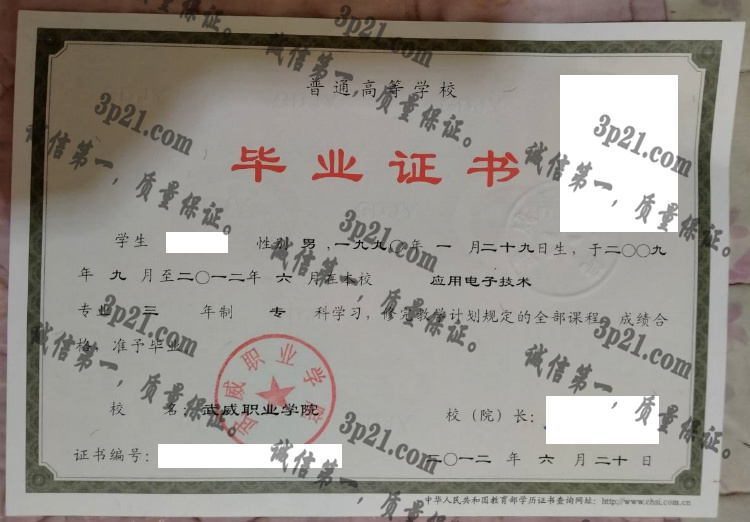 普通高等学校
毕业证书
学生 性别 男 ,一九九〇年 一 月二十九日生，于二〇〇九
年 九 月至二〇一二年 六 月在本校 应用电子技术
专业 三 年制 专 科学习，修完教学计划规定的全部课程，成绩合
格，准予毕业。
校 名：武威职业学院 校（院）长：
证书编号： 二〇一二 年 六 月 二十 日
中华人民共和国教育部学历证书查询网址：http://www.chsi.com.cn
武威职业学院
3p21.com
诚信第一，质量保证。
3p21.com
诚信第一，质量保证。
3p21.com
诚信第一，质量保证。
3p21.com
诚信第一，质量保证。
3p21.com
诚信第一，质量保证。
3p21.com
诚信第一，质量保证。
3p21.com
诚信第一，质量保证。